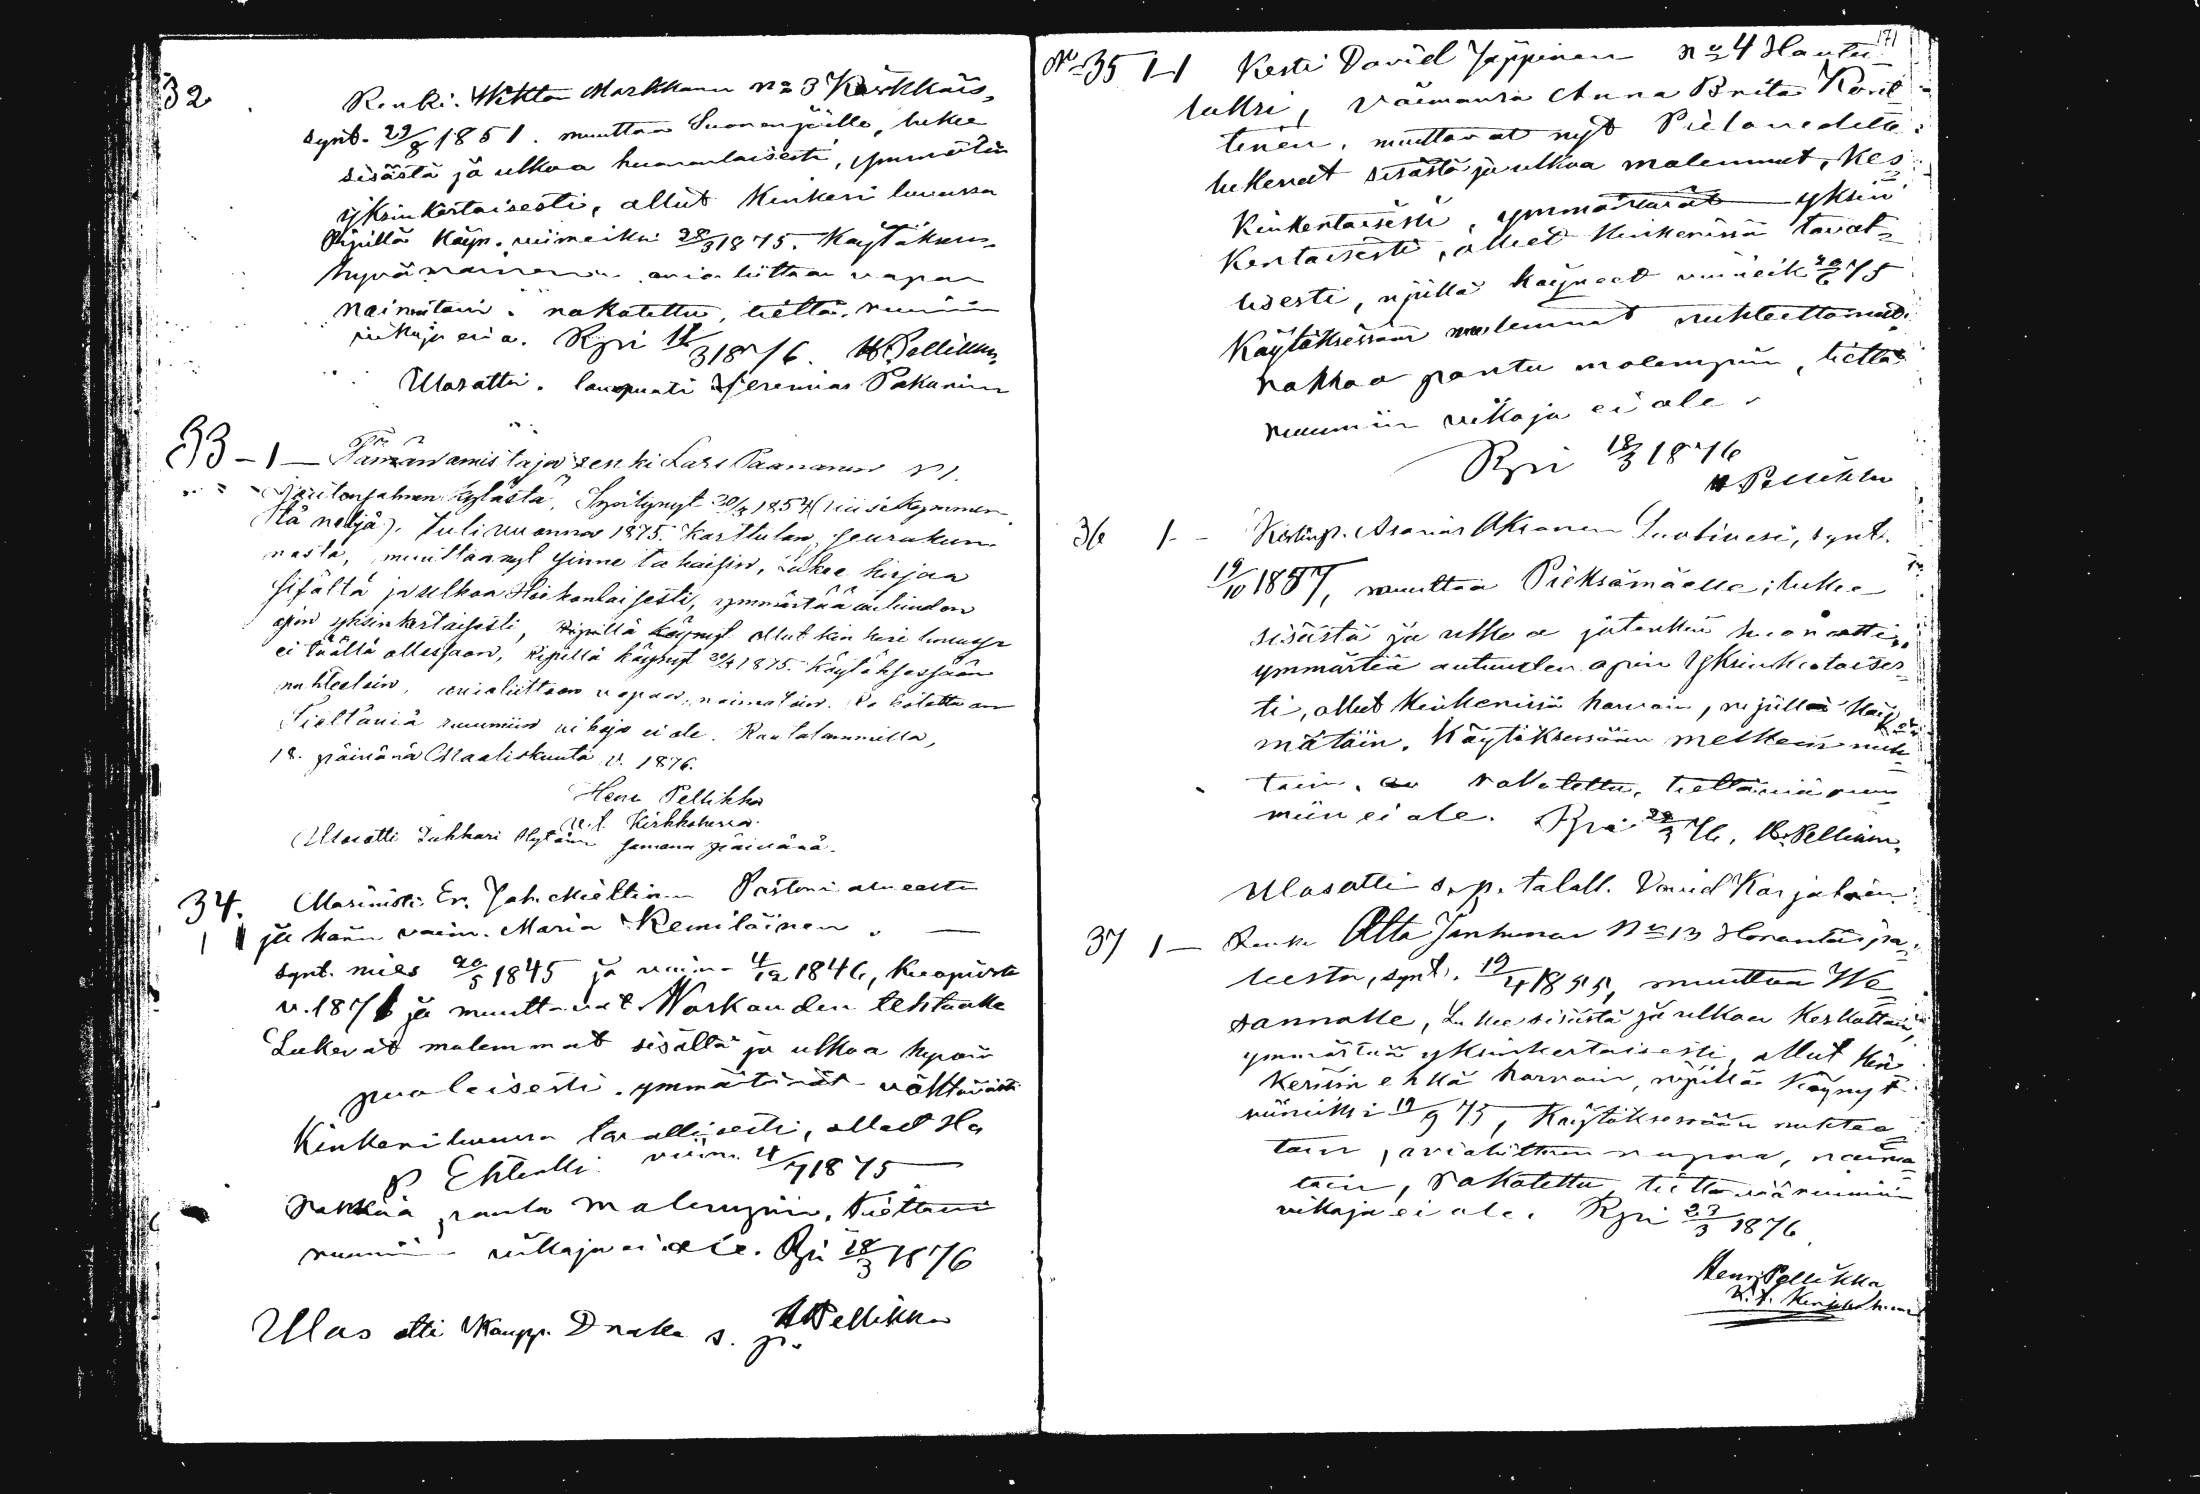 32 Renki. Wiktor Markkanen No 3 Kärkkäis=
synt. 29/8 1851. muuttaa Suonenjoelle, lukee
sisästä ja ulkoa huononlaisesti, ymmärtää
yksinkertaisesti, ollut Kinkeri luvussa
Ripillä käyn. viimeiksi 28/3 1875. Käytökses=
hyvämaineinen avioliittoon vapaa
naimatoin. rokotettu, tiettä. ruumiin
vikoja ei a. Rpi 18/3 1876. H. Pellikka
Ulosotti. lampuoti Jeremias Pakarinen
33 - 1 - Tämän omistaja renki Lars Paananen N 1.
kylästä, Syntynyt 20/4 1854 (viisikymmen
tä neljä). Tuli vuonna 1875. Karttulan seurakun
nasta, muuttaa nyt sinne takaisin, Lukee kirjaa
sisältä ja ulkoa Heikonlaisesti, ymmärtää autuuden
opin yksinkertaisesti, Ripillä käynyt ollut kin keri luvussa
ei täällä ollessaan, Ripillä käynyt 20/4 1875. Käytöksessään
nuhteetoin, avioliittoon vapaa, naimatoin. Rokotettu on
Tiettäviä ruumiin vikoja ei ole. Rautalammilla,
18. päivänä Maaliskuuta v. 1876.
Henr Pellikka
v. t. Kirkkoherra.
Ulosotti Lukkari Hytönen samana päivänä.
34. Masinisti Er. Joh. Miettinen
1 1 ja hänen vaim. Maria Kemiläinen. —
synt. mies 20/5 1845 ja vaim- 4/12 1846, Kuopiosta
v. 1871 ja muuttavat Warkauden tehtaalle
Lukevat molemmat sisältä ja ulkoa hyvän
puolaisesti. ymmärtävät välttävästi
Kinkeriluvussa tavallisesti, olleet Ha
P Ehtoolli. viim. 4/7 1875
Rokkoa pantu molempiin. Tiettävi
ruumiin vikoja ei ole. Rpi 18/3 1876
H Pellikka
Ulos otti Kaupp. Drake s. p.
171
No 35 1-1 Kesti David Jäppinen No 4 Hantu
laksi, vaimonsa Anna Brita Kort
tinen, muuttavat nyt Pielavedelle
lukevat sisästä ja ulkoa molemmat, Kes
kinkertaisesti, ymmärtävät yksin
kertaisesti, olleet kinkerissä tavat=
lisesti, ripillä käyneet viimeik 20/6 75
Käytöksessään molemmat nuhteettomat
rokkoa pantu molempiin, tiettä
ruumiin vikoja ei ole.
Rpi 18/3 1876
H Pellikka
36 1 - Kestinp. Asarias Oksanen Suolivesi, synt.
19/10 1857, muuttaa Pieksämäelle; lukee
sisästä ja ulkoa jotenkin huonosti
ymmärtää autuuden opin Yksinkertaises=
ti, ollut Kinkerissä harvoin, ripillä käy
mätöin. Käytöksessään melkein nuh
toin, on rokotettu, tiettäviä ruu
miin ei ole. Rpi 22/3 76, H. Pellikka.
Ulosotti s. p. talall. David Karjalain
37 1 - Renki Otto Janhunen No 13 Horontaipa=
leesta, synt. 19/4 1855, muuttaa We
sannolle, Lukee sisästä ja ulkoa keskottain,
ymmärtää yksinkertaisesti, ollut kin
keriin ehkä harvoin, ripillä käynyt
viimiksi 19/9 75, Käytöksessään nuhtee
toin, avioliittoon vapaa, naima=
toin, Rokotettu, tiettävää ruumiin
vikoja ei ole. Rpi 23/3 1876.
Henr Pellikka
v. t. Kirkkoherra